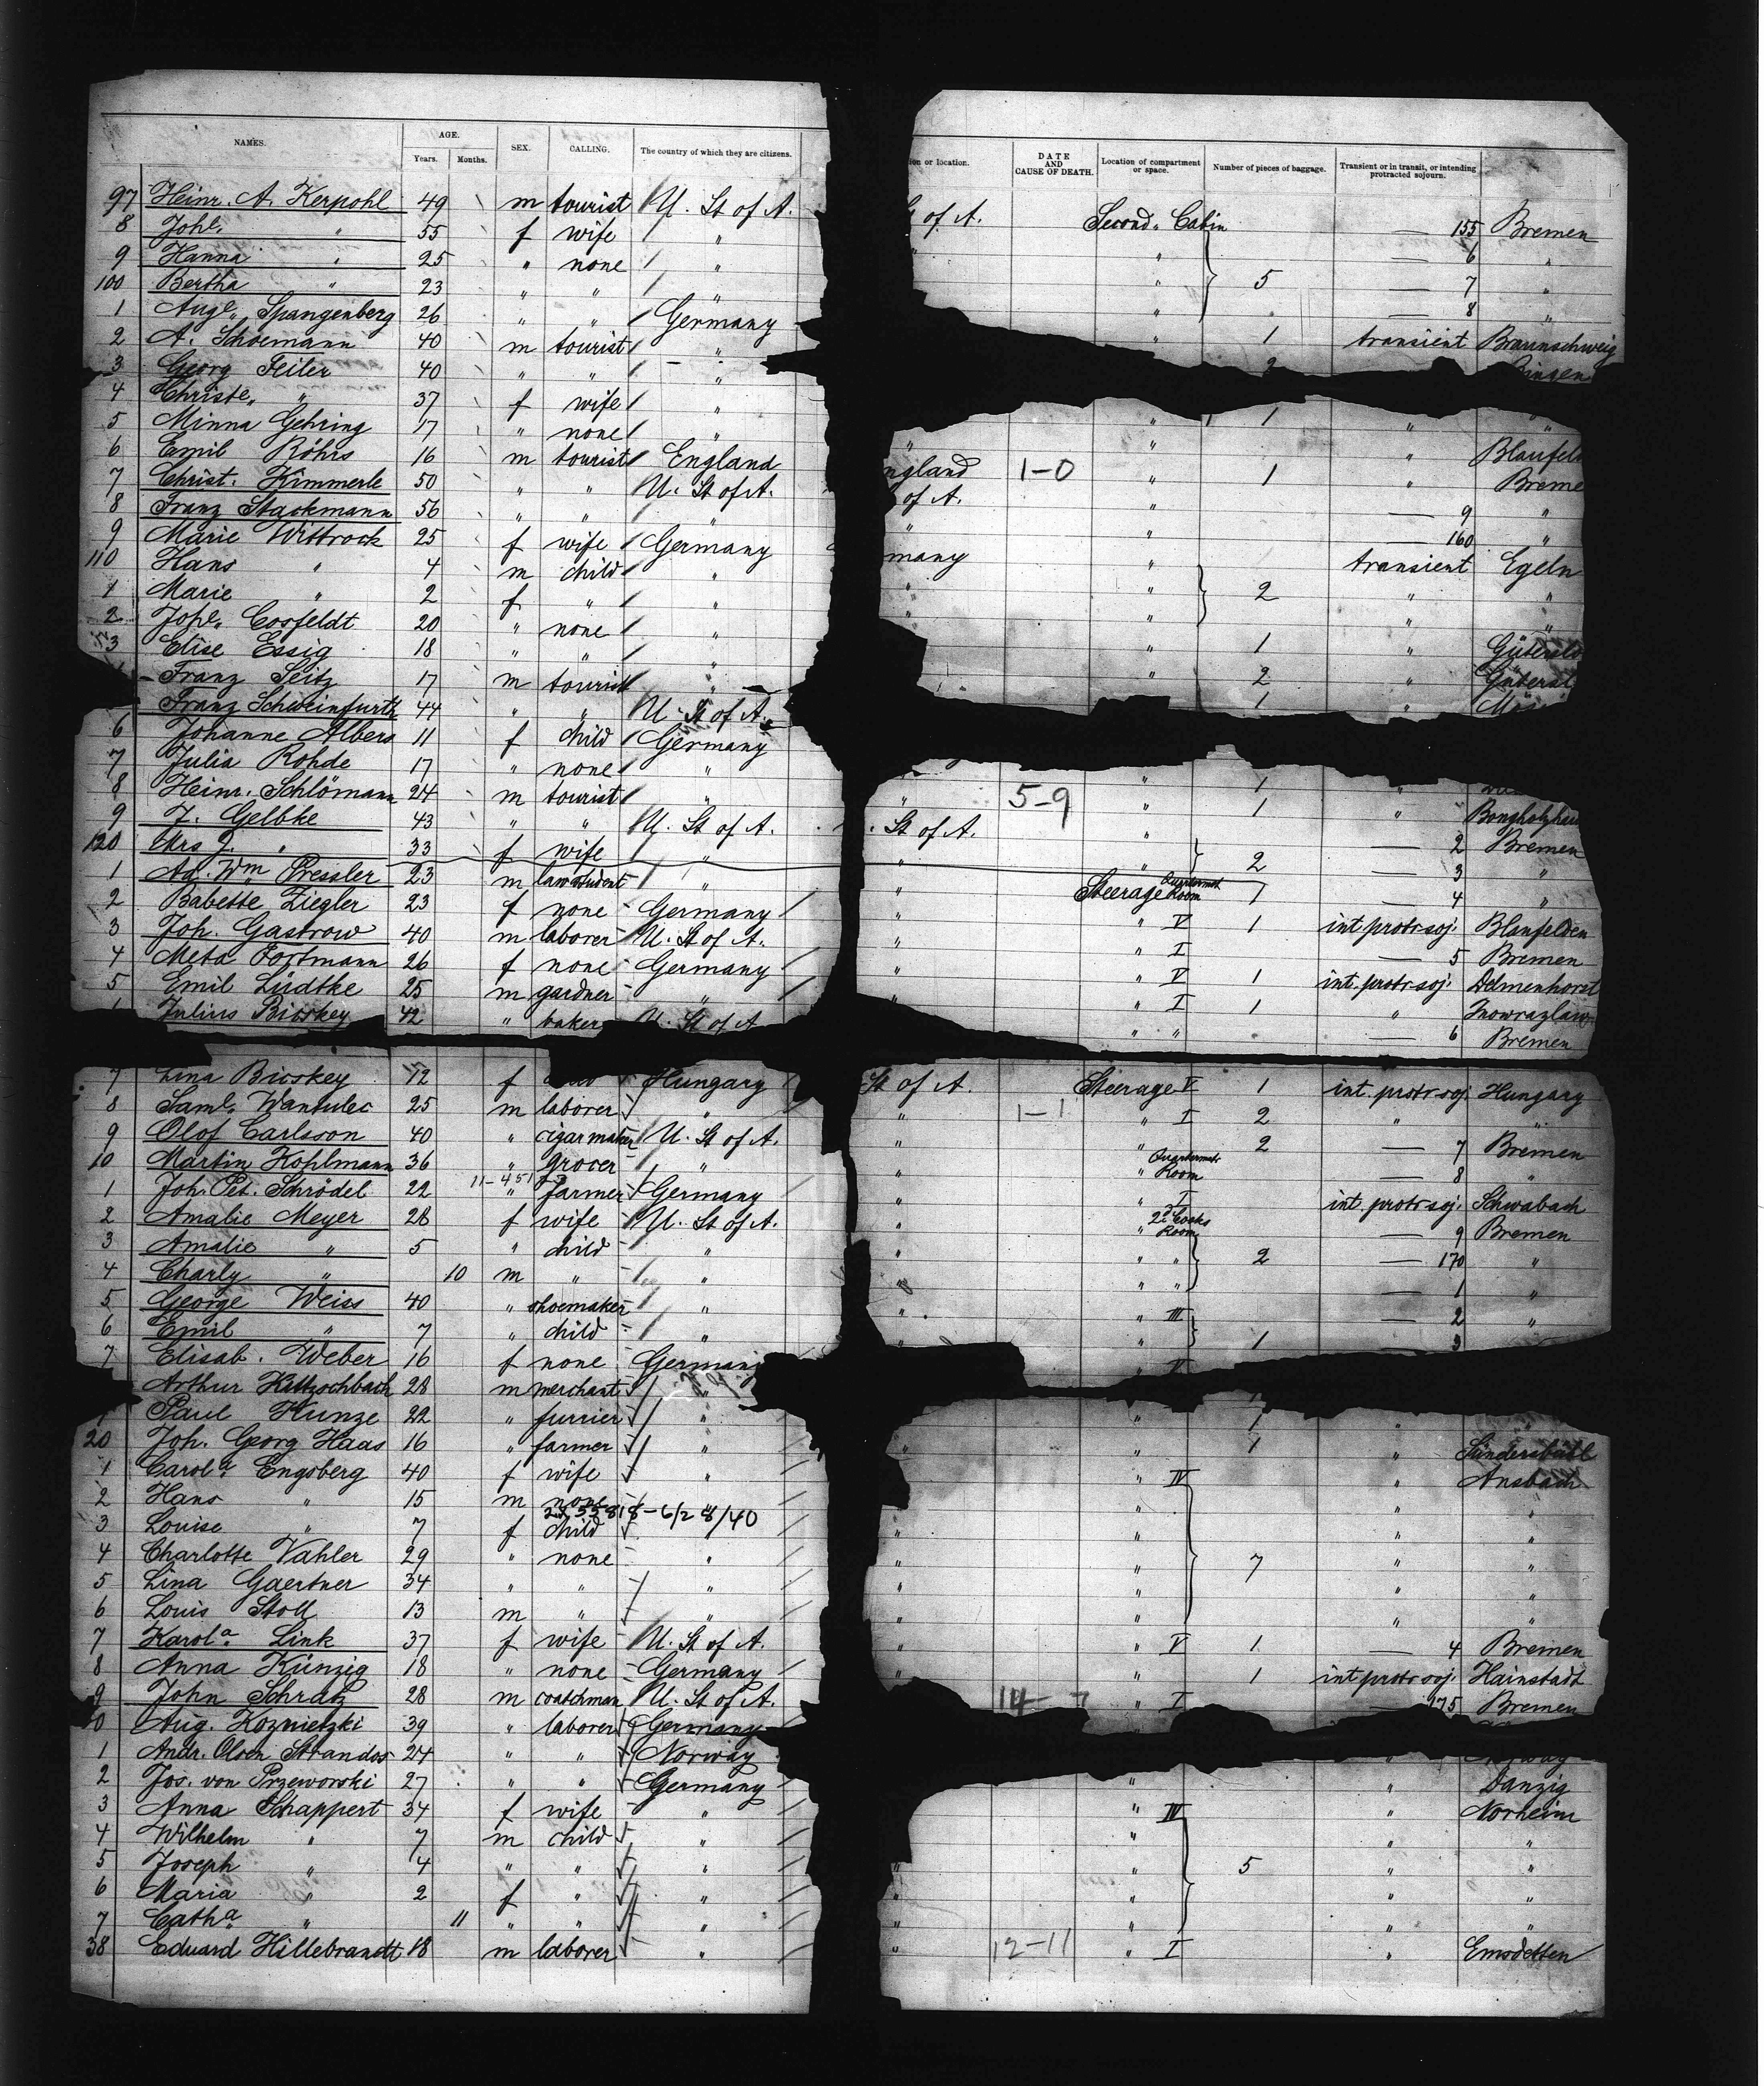 NAMES. AGE. Years. Months. SEX. CALLING. The country of which they are citizens.
97 Heinr. A. Kerpohl 49 m tourist U. St of A.
8 Johe. " 55 f wife "
9 Hanna " 25 " none "
100 Bertha " 23 " " "
1 Auge. Spangenberg 26 " " Germany
2 A. Schoemann 40 m tourist "
3 Georg Feiler 40 " " "
4 Christe. " 37 f wife "
5 Minna Gehring 17 " none "
6 Emil Röhrs 16 m tourist England
7 Christ. Kimmerle 50 " " U. St of A.
8 Franz Stackmann 56 " " "
9 Marie Wittrock 25 f wife Germany
110 Hans " 4 m child "
1 Marie " 2 f " "
2 Johe. Cosfeldt 20 " none "
3 Elise Essig 18 " " "
Franz Seitz 17 m tourist "
Franz Schweinfurth 44 " " U. St of A.
6 Johanne Albers 11 f child Germany
7 Julia Rohde 17 " none "
8 Heinr. Schlömann 24 m tourist "
9 J. Gelbke 43 " " U. St of A.
120 Mrs J. " 33 f wife "
1 Ad. Wm Pressler 23 m law student "
2 Babette Ziegler 23 f none Germany
3 Joh. Gastrow 40 m laborer U. St of A.
4 Meta Fortmann 26 f none Germany
5 Emil Lüdtke 25 m gardner "
Julius Bicskey 42 " baker U. St of A
7 Lina Bicskey 12 f Hungary
8 Saml. Wantulec 25 m laborer "
9 Olof Carlsson 40 " cigarmaker U. St of A.
10 Martin Kohlmann 36 " grocer "
1 Joh. Pet. Schrödel 22 11-451 " farmer Germany
2 Amalie Meyer 28 f wife U. St of A.
3 Amalie " 5 " child "
4 Charly " 10 m " "
5 George Weiss 40 " shoemaker "
6 Emil " 7 " child "
7 Elisab. Weber 16 f none Germany
Arthur Kittzschbach 28 m merchant "
Paul Kunze 22 " furrier "
20 Joh. Georg Haas 16 " farmer "
1 Carola Engsberg 40 f wife "
2 Hans " 15 m none "
3 Louise " 7 f child 2d 55818-6/28/40
4 Charlotte Vahler 29 " none "
5 Lina Gaertner 34 " " "
6 Louis Stoll 13 m " "
7 Karola Link 37 f wife U. St of A.
8 Anna Künzig 18 " none Germany
9 John Schratz 28 m coatchman U. St of A.
0 Aug. Koznietzki 39 " laborer Germany
1 Andr. Olsen Strandos 24 " " Norway
2 Jos. von Przeworski 27 " " Germany
3 Anna Schappert 34 f wife "
4 Wilhelm " 7 m child "
5 Joseph " 4 " " "
6 Maria " 2 f " "
7 Catha " 11 " " "
38 Eduard Hillebrandt 18 m laborer "
ion or location. DATE AND CAUSE OF DEATH. Location of compartment or space. Number of pieces of baggage. Transient or in transit, or intending protracted sojourn.
of A. Second Cabin — 155 Bremen
" " — 6 "
" 5 — 7 "
" — 8 "
" 1 transient Braunschweig
2 Bingen
" 1 " "
" " " Blaufel
ngland 1-0 " 1 " Breme
of A. " — 9 "
" " — 160 "
many " transient Egeln
" " 2 " "
" " " "
" 1 " Gütersl
" 2 " Gütersl
1 "
" 1 "
" 5-9 " 1 " Borgholzhau
St of A. " — 2 Bremen
" " 2 — 3 "
" Steerage Quartermst Room 1 — 4 "
" " V 1 int. protr soj. Blaufelden
" " I — 5 Bremen
" " V 1 int. protr soj. Delmenhorst
" " I 1 " Inowrazlaw
" " — 6 Bremen
St of A. Steerage V 1 int. protr soj. Hungary
" 1-1 " I 2 " "
" " 2 — 7 Bremen
" " Quartermst Room — 8 "
" " I int. protr soj. Schwabach
" " 2d Cooks Room — 9 Bremen
" " " 2 — 170 "
" " " — 1 "
" " III — 2 "
" " 1 — 3
" V
" 1 "
" " 1 " Sündersbühl
" " IV " Ansbach
" " " "
" " " "
" " 7 " "
" " " "
" " " "
" " V 1 — 4 Bremen
" " 1 int protr soj. Hainstadt
14-7 " I — 175 Bremen
" Norway
" " Danzig
" IV " Norheim
" " "
" " 5 " "
" " " "
" " " "
" 12-11 " I " Emsdetten